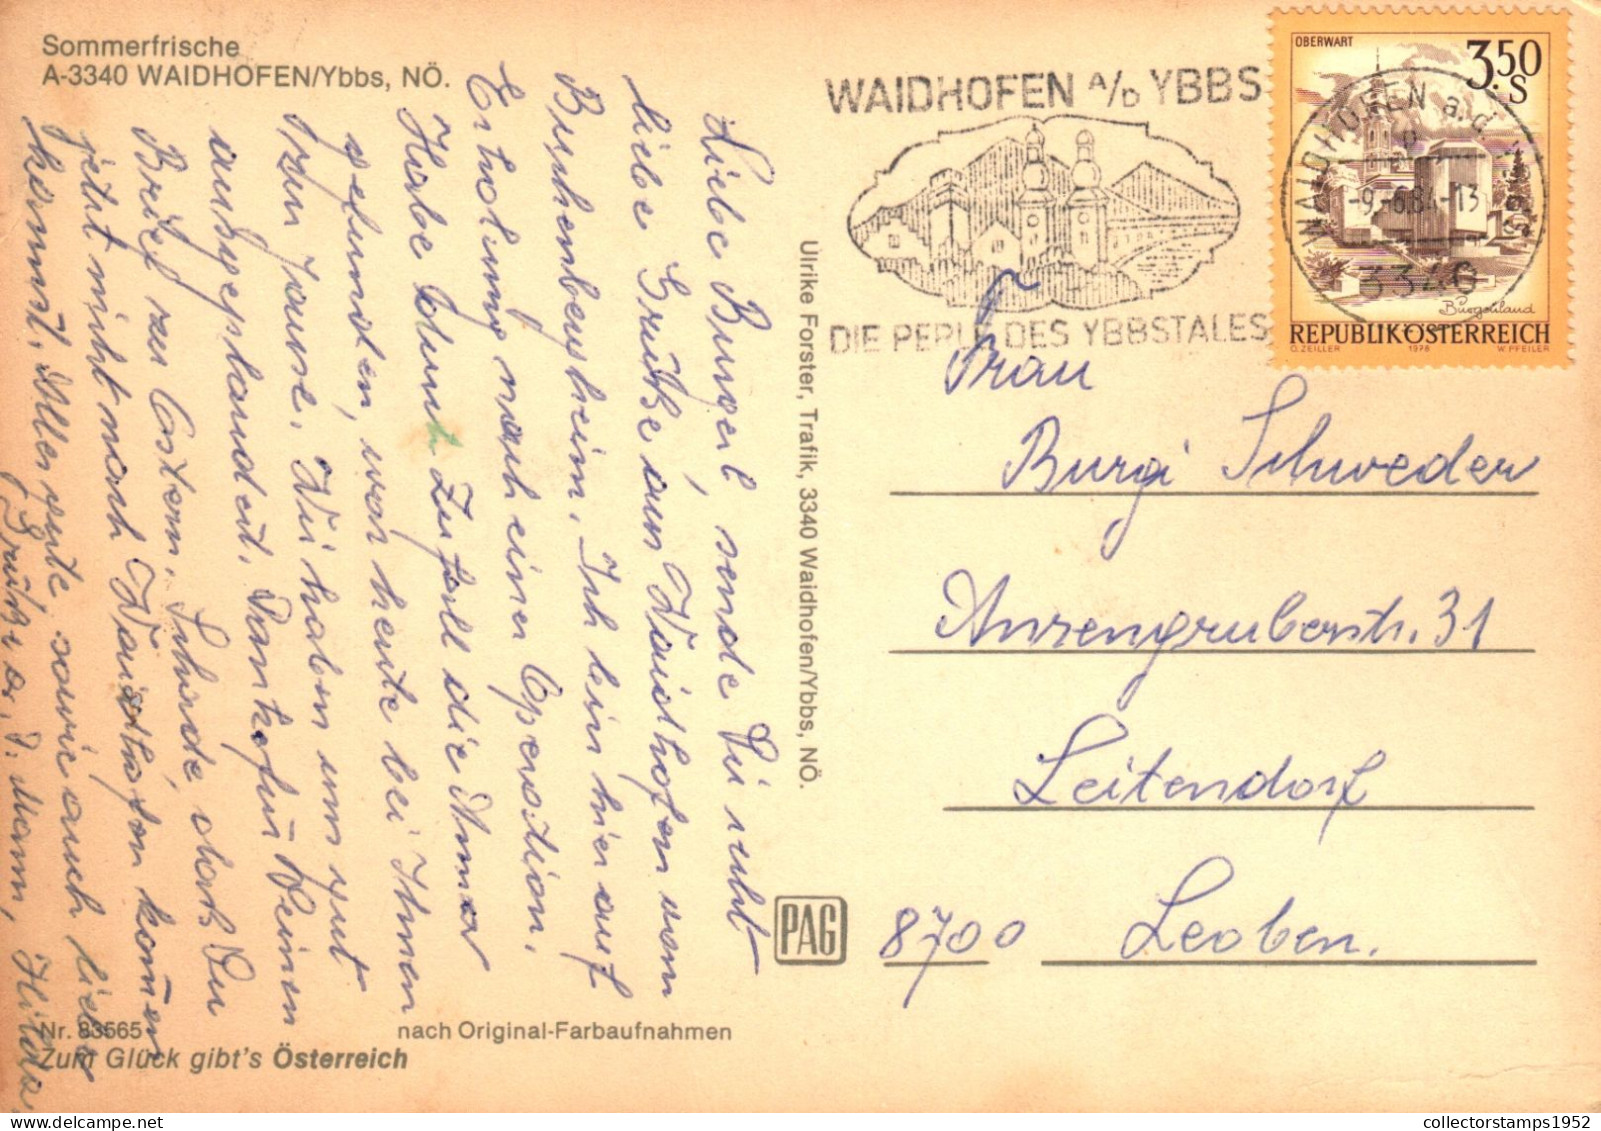 Sommerfrische
A-3340 WAIDHOFEN/Ybbs, NÖ.
Liebe Burgerl, sende Dir recht
liebe Grüße aus Waidhofen vom
Buchenbergheim. Ich bin hier auf
Erholung nach einer Operation.
Habe durch Zufall die Anna
gefunden, war heute bei Ihnen
zum Jause. Wir haben uns gut
ausgeplaudert. Danke für Deinen
Brief zu Ostern. Schade, daß Du
jetzt nicht nach Waidhofen kommen
kannst. Alles gute sowie auch liebe
Grüße a. d. Mann, Hilda
Nr. 83565
nach Original-Farbaufnahmen
Zum Glück gibt's Österreich
Ulrike Forster, Trafik, 3340 Waidhofen/Ybbs, NÖ.
PAG
WAIDHOFEN A/D YBBS
DIE PERLE DES YBBSTALES
OBERWART
3.50
S
WAIDHOFEN a.d.
-9.-6.84-13
3340
Burgenland
REPUBLIK ÖSTERREICH
O. ZEILLER 1978 W. PFEILER
Frau
Burgi Schweder
Anzengruberstr. 31
Leitendorf
8700 Leoben.
collectorstamps1952